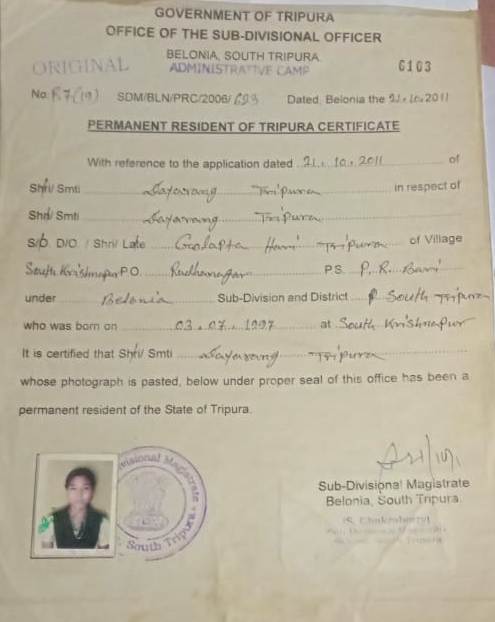 GOVERNMENT OF TRIPURA
OFFICE OF THE SUB-DIVISIONAL OFFICER
BELONIA, SOUTH TRIPURA
ORIGINAL ADMINISTRATIVE CAMP 6103
No. R7(19) SDM/BLN/PRC/2006/ 693 Dated, Belonia the 21.10.2011
PERMANENT RESIDENT OF TRIPURA CERTIFICATE
With reference to the application dated 21.10.2011 of
Shri/ Smti Tripura in respect of
Shri/ Smti Tripura
S/o. D/O. / Shri/ Late Hari Tripura of Village
South Krishnapur P.O. Radhanagar P.S. P. R. Bari
under Belonia Sub-Division and District South Tripura
who was born on 03.07.1997 at South Krishnapur
It is certified that Shri/ Smti Tripura
whose photograph is pasted, below under proper seal of this office has been a
permanent resident of the State of Tripura.
Sub-Divisional Magistrate
Belonia, South Tripura.
(S. Chakraborty)
Sub Divisional Magistrate
Belonia, South Tripura
Divisional Magistrate
South Tripura